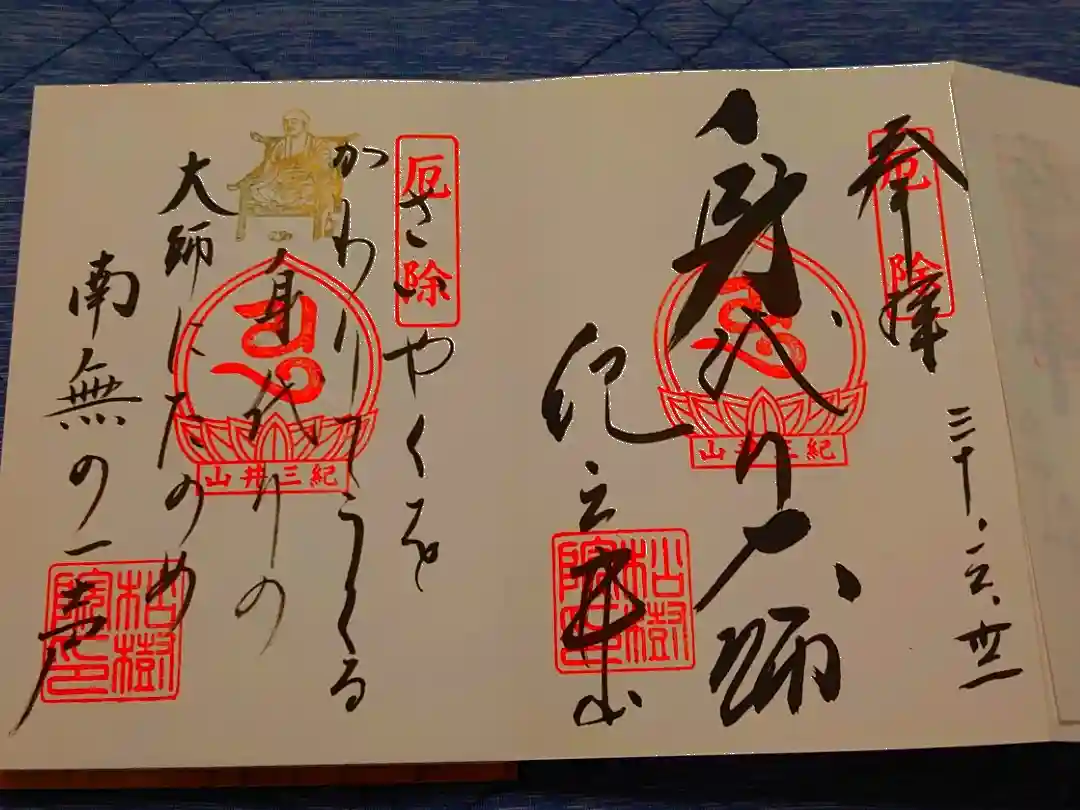 奉拝
厄除
三十
身代り大師
紀三井山
紀三井山
松樹院印
厄除
さいやくを
かわりてうくる
身代りの
大師にたのめ
南無の一声
紀三井山
松樹院印